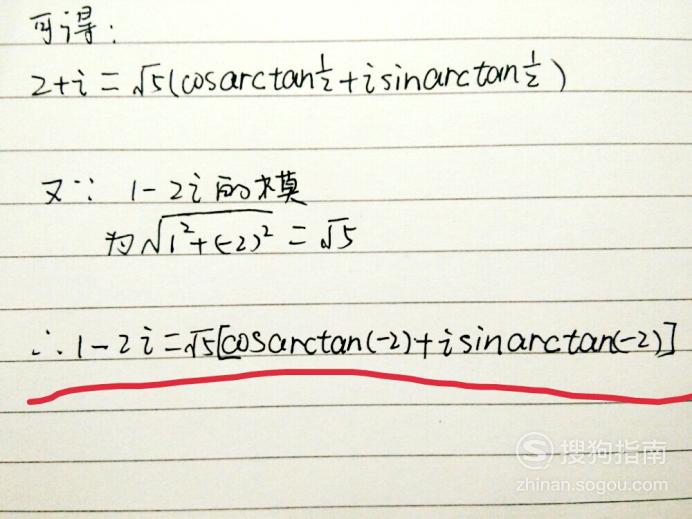 可得:
2+i=√5(cosarctan½+isinarctan½)
又∵ 1-2i的模
为√1²+(-2)²=√5
∴1-2i=√5[cosarctan(-2)+isinarctan(-2)]
搜狗指南
zhinan.sogou.com